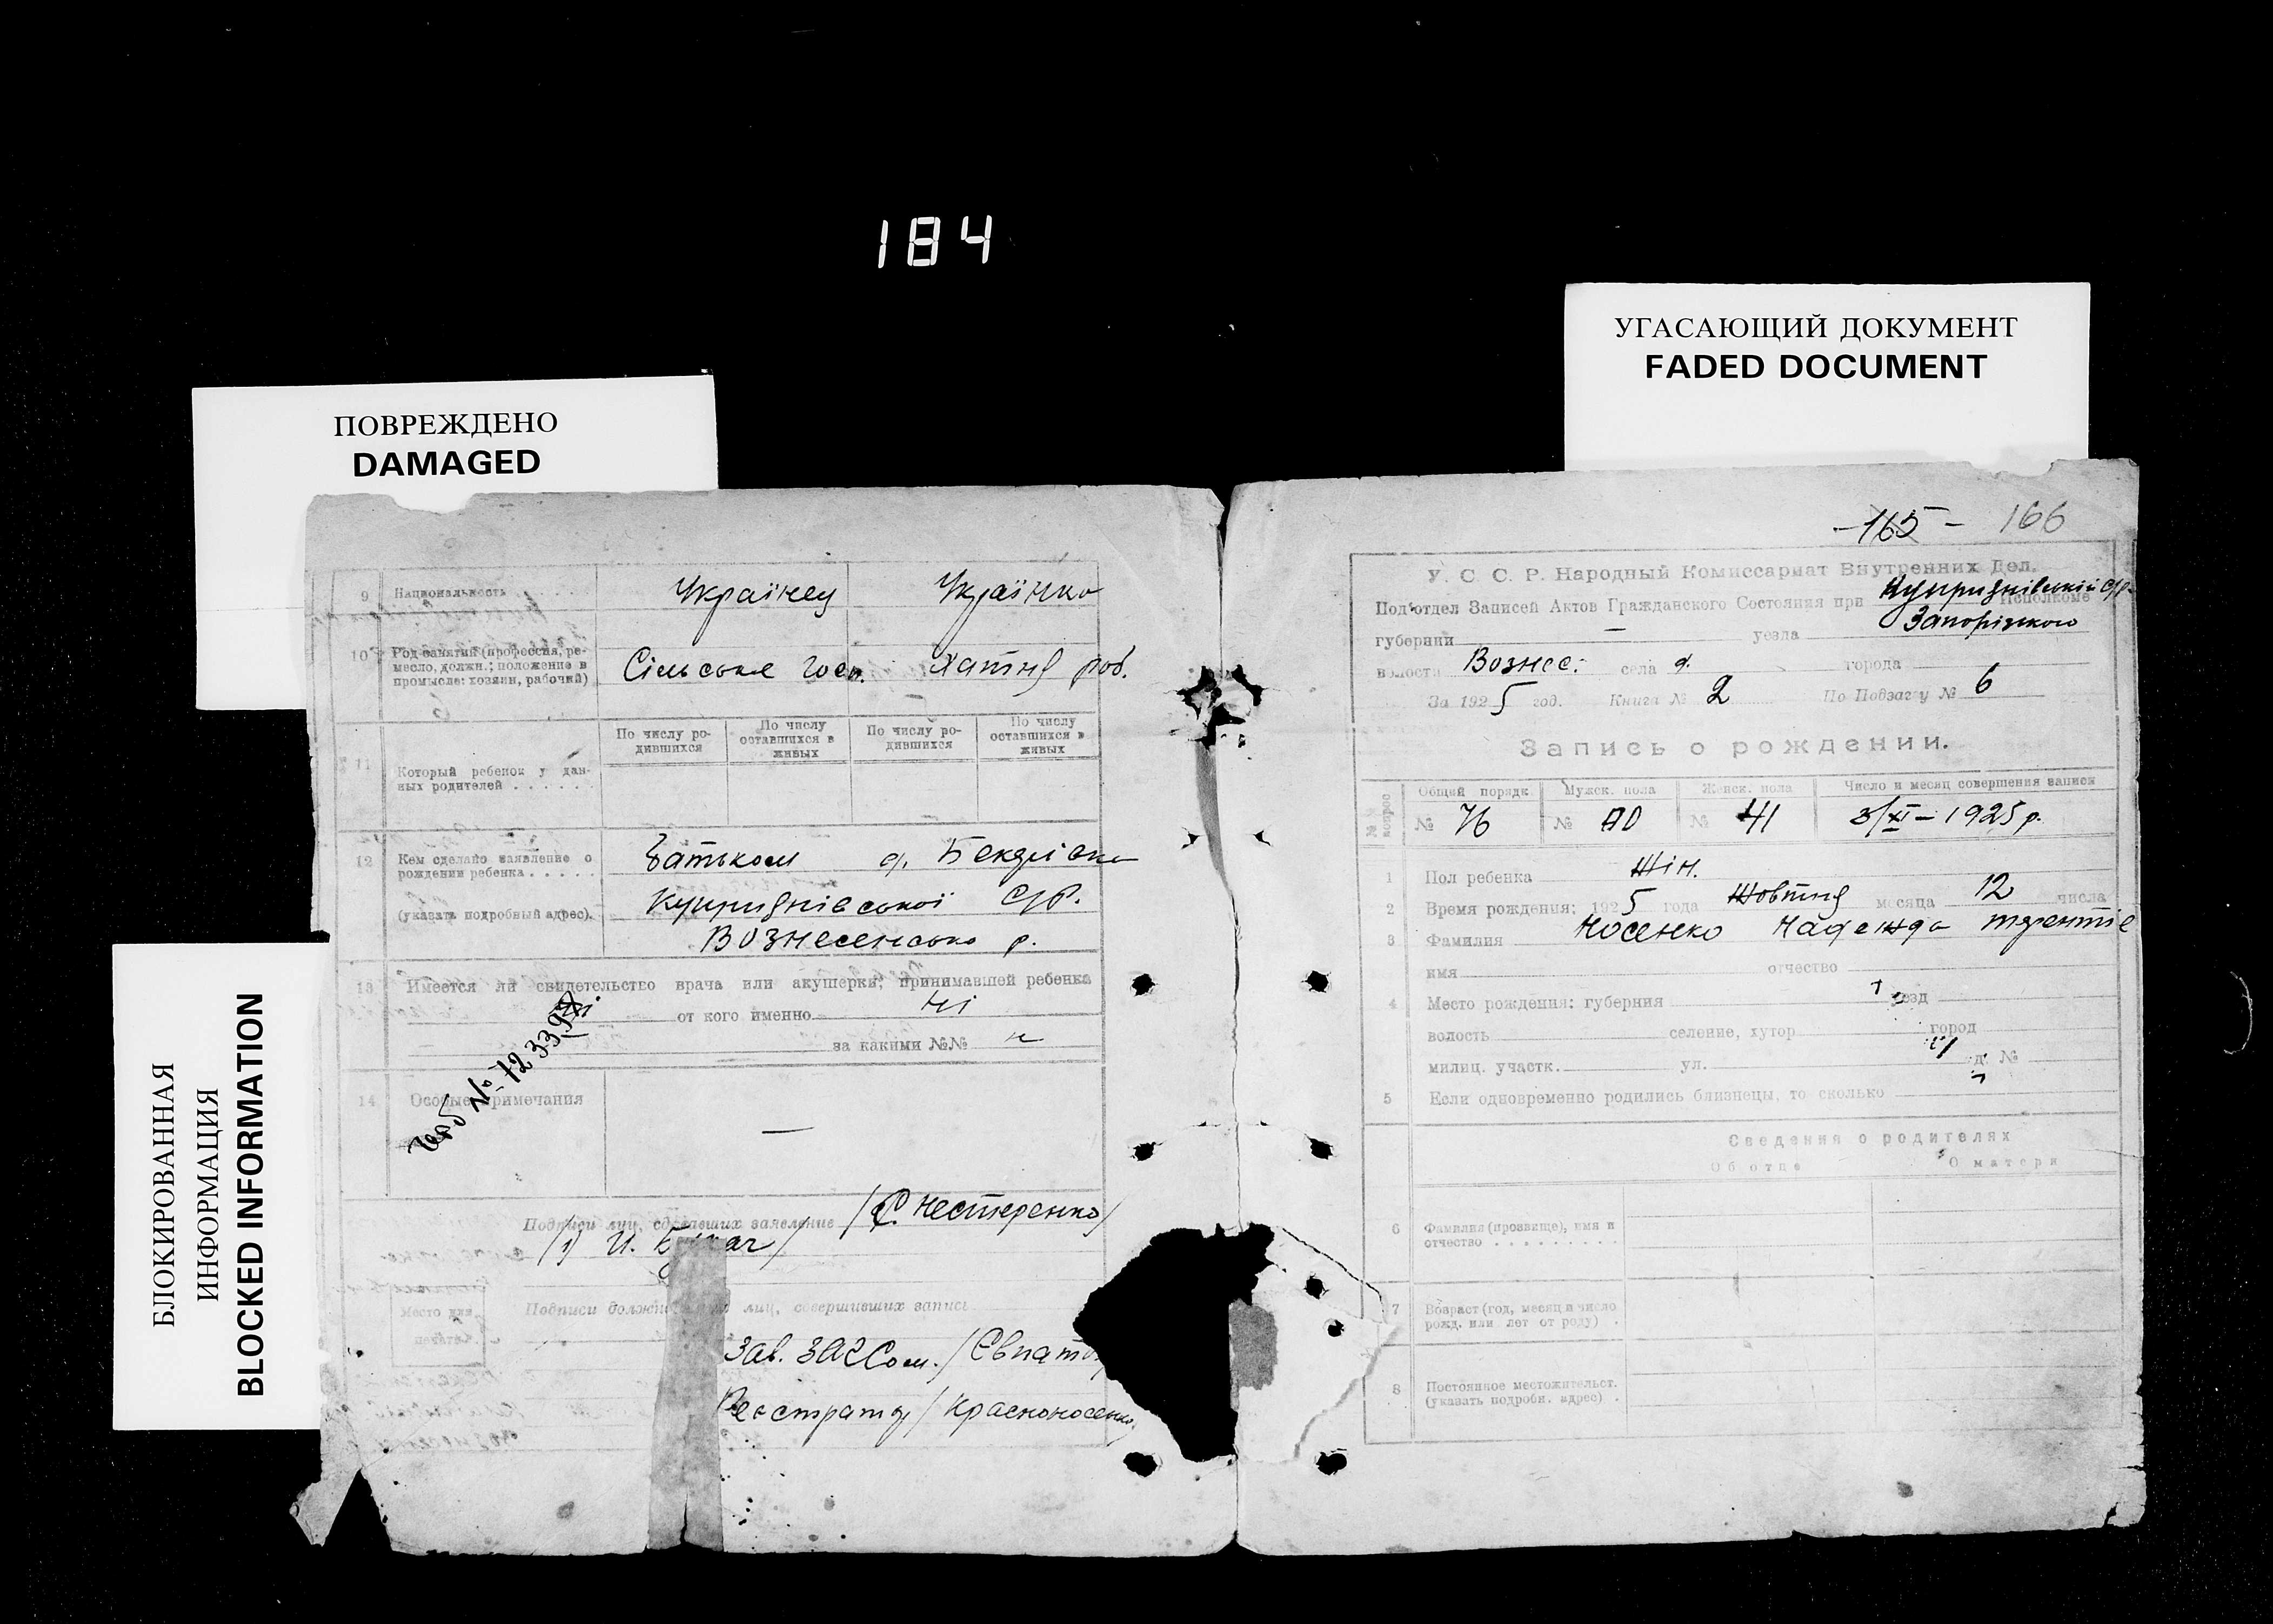 184
УГАСАЮЩИЙ ДОКУМЕНТ
FADED DOCUMENT
ПОВРЕЖДЕНО
DAMAGED
БЛОКИРОВАННАЯ
ИНФОРМАЦИЯ
BLOCKED INFORMATION
9 Национальность Українец Українка
10 Род занятий (профессия, ре-
месло, должн.; положение в
промысле: хозяин, рабочий)
Сільське госп. Хатня роб.
11 Который ребенок у дан-
ных родителей
По числу ро-
дившихся
По числу
оставшихся в
живых
По числу ро-
дившихся
По числу
оставшихся в
живых
12 Кем сделано заявление о
рождении ребенка
(указать подробный адрес).
Батьком
Куприянівської С/Р.
Вознесенсько р.
13 Имеется ли свидетельство врача или акушерки, принимавшей ребенка
ні от кого именно ні
за какими №№
14 Особые примечания —
№ 12339
Подписи лиц, сделавших заявление /Є. Нестеренко/
Подписи должностных лиц, совершивших запись
Место для
печати.
Зав. ЗАГСом./
/Красноносенко
-165- 166
У. С. С. Р. Народный Комиссариат Внутренних Дел.
Под'отдел Записей Актов Гражданского Состояния при Куприянівській С/Р. Исполкоме
губернии — уезда Запорізького
волости Вознес. села города
За 1925 год. Книга № 2 По Подзагсу № 6
Запись о рождении.
№№ вопрос
Общий порядк. Мужск. пола Женск. пола Число и месяц совершения записи
№ 76 № № 41 3/XI – 1925 р.
1 Пол ребенка Жін.
2 Время рождения: 1925 года Жовтня месяца 12 числа
3 Фамилия Носенко Надежда Терентіе
имя отчество
4 Место рождения: губерния уезд
волость селение, хутор город
милиц. участк. ул. д. №
5 Если одновременно родились близнецы, то сколько
Сведения о родителях
Об отце О матери
6 Фамилия (прозвище), имя и
отчество
7 Возраст (год, месяц и число
рожд. или лет от роду)
8 Постоянное местожительст.
(указать подробн. адрес)